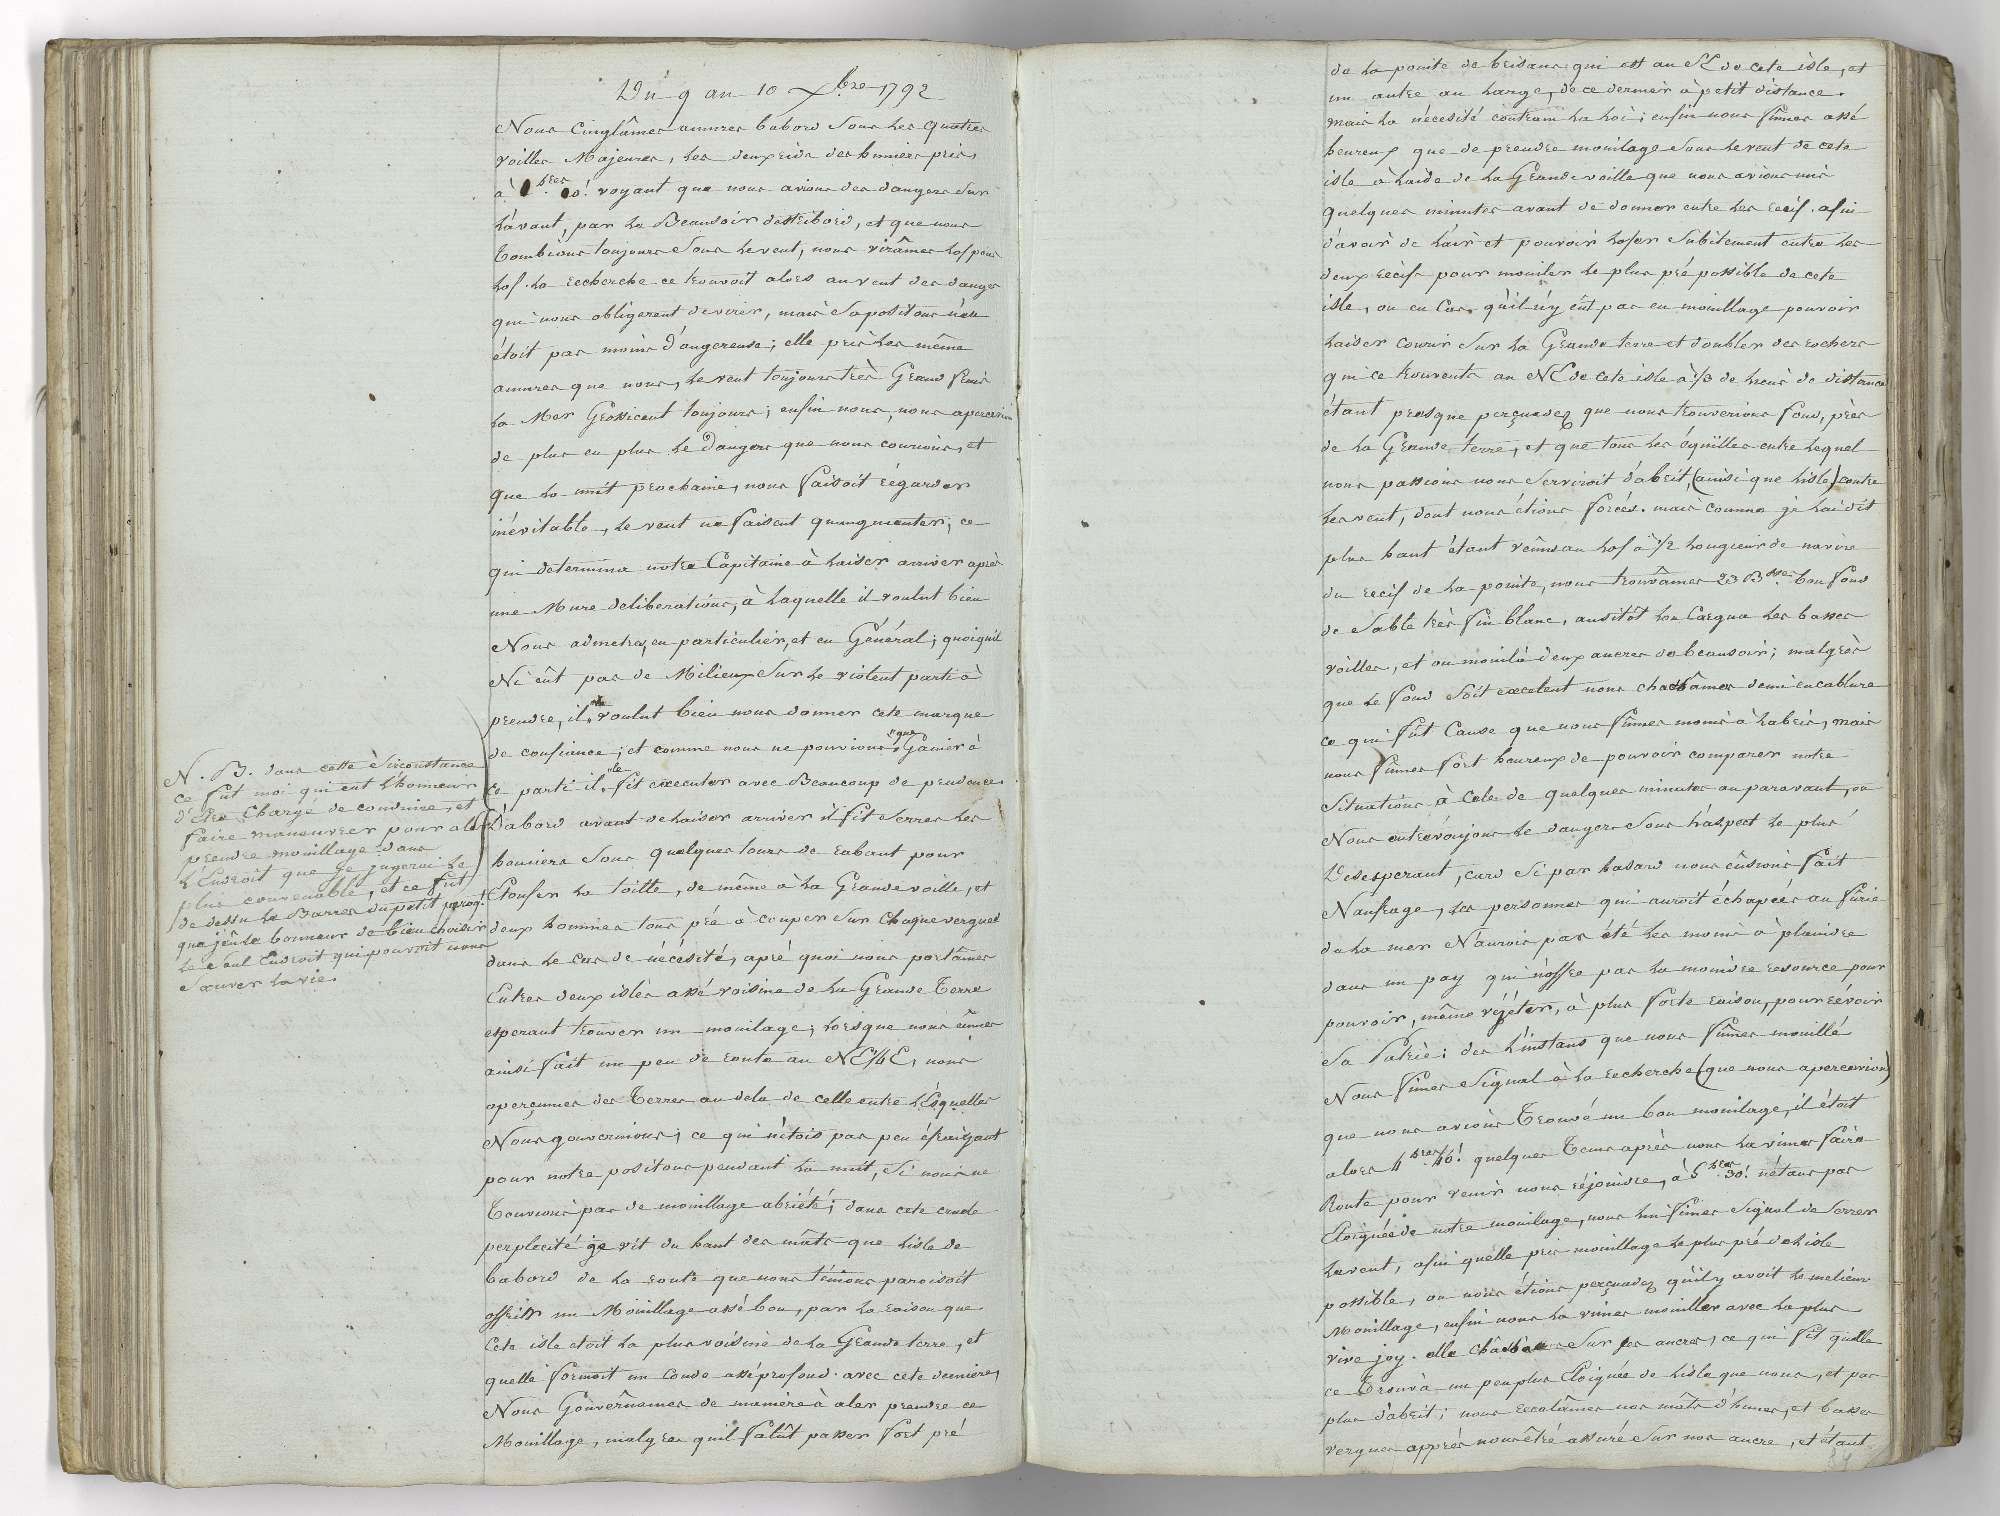 Du 9 au 10 Xbre 1792
Nous Cinglâmes amures babord sous les quatres
voilles Majeures, les deux ris des huniers pris,
à hres 10! voyant que nous avions des dangers sur
l'avant, par le Beausoir destribord, et que nous
tombions toujours sous le vent, nous virâmes lof pour
lof. la recherche ce trouvoit alors au vent des danger
qui nous obligerent devirer, mais sa position n'en
étoit pas moins d'angereuse; elle pris les même
amures que nous, le vent toujours très Grand frais
la Mer Grossicent toujours; enfin nous, nous apercevions
de plus en plus le Dangers que nous courions, et
que la nuit prochaine, nous faisoit régarder
inévitable, le vent ne faisent qu'augmenter; ce
qui determina notre Capitaine à laiser arriver après
une Mure deliberations, à laquelle il voulut bien
Nous admetre, en particulier, et en Général; quoiquil
Ni eût pas de Milieux sur le violent parti à
prendre, il voulut bien nous donner cete marque
de confiance; et comme nous ne pouvions que Ganier à
ce parti il le fit executer avec Beaucoup de prudence.
D'abord avant de laiser arriver il fit serrer les
huniers sous quelques tours de rabant pour
Etoufer la toille, de même à la Grande voille, et
deux hommes tous pré à couper sur chaque vergues
dans le cas de nécésité, apré quoi nous portâmes
Entres deux islès assé voisine de la Grande Terre
esperant trouver un mouilage; lorsque nous eûmes
ainsi fait un peu de route au NE¼E, nous
aperçumes des Terres au dela de celle entre lésquelles
Nous gouvernions; ce qui n'étois pas peu éfraiyant
pour notre positons pendant la nuit, si nous ne
trouvions pas de mouillage abriété; dans cete crude
perplecité je vit du haut des mâts que lisle de
babord de la route que nous ténions paroisoit
offrir un Mouillage assé bon, par la raison que
Cete isle etoit la plus voisine de la Grande terre, et
quelle formoit un Coude assé profond avec cete derniere,
Nous Gouvernâmes de manière à aler prendre ce
Mouillage, malgrés quil falût passer fort pré
N. B. dans cette Sirconstance
ce fut moi qui eut l'honneur
d'etre Chargé de conduire, et
faire maneuvrer pour aler
prendre mouillage dans
L'Endroit que je jugerai le
plus convenable, et ce fut
de dessu la Barres du petit peroq.t
que j'eûs le bonneur de bien choisir
le seul Endroit qui pouvoit nous
sauver la vie.
de la pointe de brisans qui est au SE de cete isle, et
un autre au large, de ce dernier à petit distance.
mais la nécesité contrain la loi; enfin nous fûmes assé
heureux que de prendre mouilage sous le vent de cete
isle à laide de la Grande voille que nous avions mis
quelques minutes avant de donner entre les recif. afin
d'avoir de l'air et pouvoir lofer subitement entre les
deux récifs pour mouiler le plus pré possible de cete
isle, ou en Cas, qu'il n'y eût pas eu mouillage pouvoir
laiser courir sur la Grande terre et doubler des rochers
qui ce trouvents au NE de cete isle à ⅓ de lieus de distance
étant presque perçuadez que nous trouverions fond, près
de la Grande terre, et que tous les éguilles entre lequel
nous passions nous serviroit d'abrit, (ainsi que lisle) contre
les vent, dont nous étions forcés. mais comme je lai dit
plus haut étant vénus au lof à ½ longieur de navire
du recif de la pointe, nous trouvâmes 23 B.sses bon fond
de sable très fin blanc, ausitôt lon Cargua les basses
voilles, et on mouilà deux ancres de beausoir; malgrès
que le fond soit excelent nous chassâmes demi encablure
ce qui fut Cause que nous fûmes moins à labris, mais
nous fûmes fort heureux de pouvoir comparer notre
situations à Cele de quelques minutes auparavant, ou
Nous entrévoyons le dangers sous láspect le plus
Desesperant, card si par hasard nous eûsions fait
Naufrage, les personnes qui auroit échapées au furie
de la mer N'aurois pas été les moins à plaindre
dans un pay qui n'offre pas la moindre resource pour
pouvoir, même végéter, à plus forte raison, pour révoir
sa Patrie: des linstans que nous fûmes mouillé
Nous fimes signal à la recherche (que nous apercevions)
que nous avions Trouvé un bon mouilage, il étoit
alors 4 hres 46! quelques Tems après nous la vimes faire
Route pour venir nous réjoindre, à 5 hres 30! n'étans pas
Eloignée de notre mouilage, nous lui fimes signal de serrer
le vent, afin quelle pris mouillage le plus pré de lisle
possible, ou nous étions perçuadez qu'il y avoit le melieur
Mouillage, enfin nous la vimes mouiller avec la plus
vive joy. elle Châssa sur ses ancres, ce qui fit quelle
ce Trouvà un peu plus Eloignée de lisle que nous, et pas
plus d'abrit; nous recalâmes nos mâts d'hunes, et basses
vergues apprés nous être assuré sur nos ancre, et étant